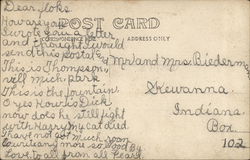 Dear folks
How are you
I wrote you a letter
and thought I would
send this postal
This is Thompson
vill Mich. park
This is the fountain
O yes How is Dick
now does he still fight
with Harry my cat died
I have not got much room
to write any more so Good By
Love to all from all
POST CARD
CORRESPONDENCE
ADDRESS ONLY
Mr and Mrs. Biederm
Kewanna
Indiana
Box
102